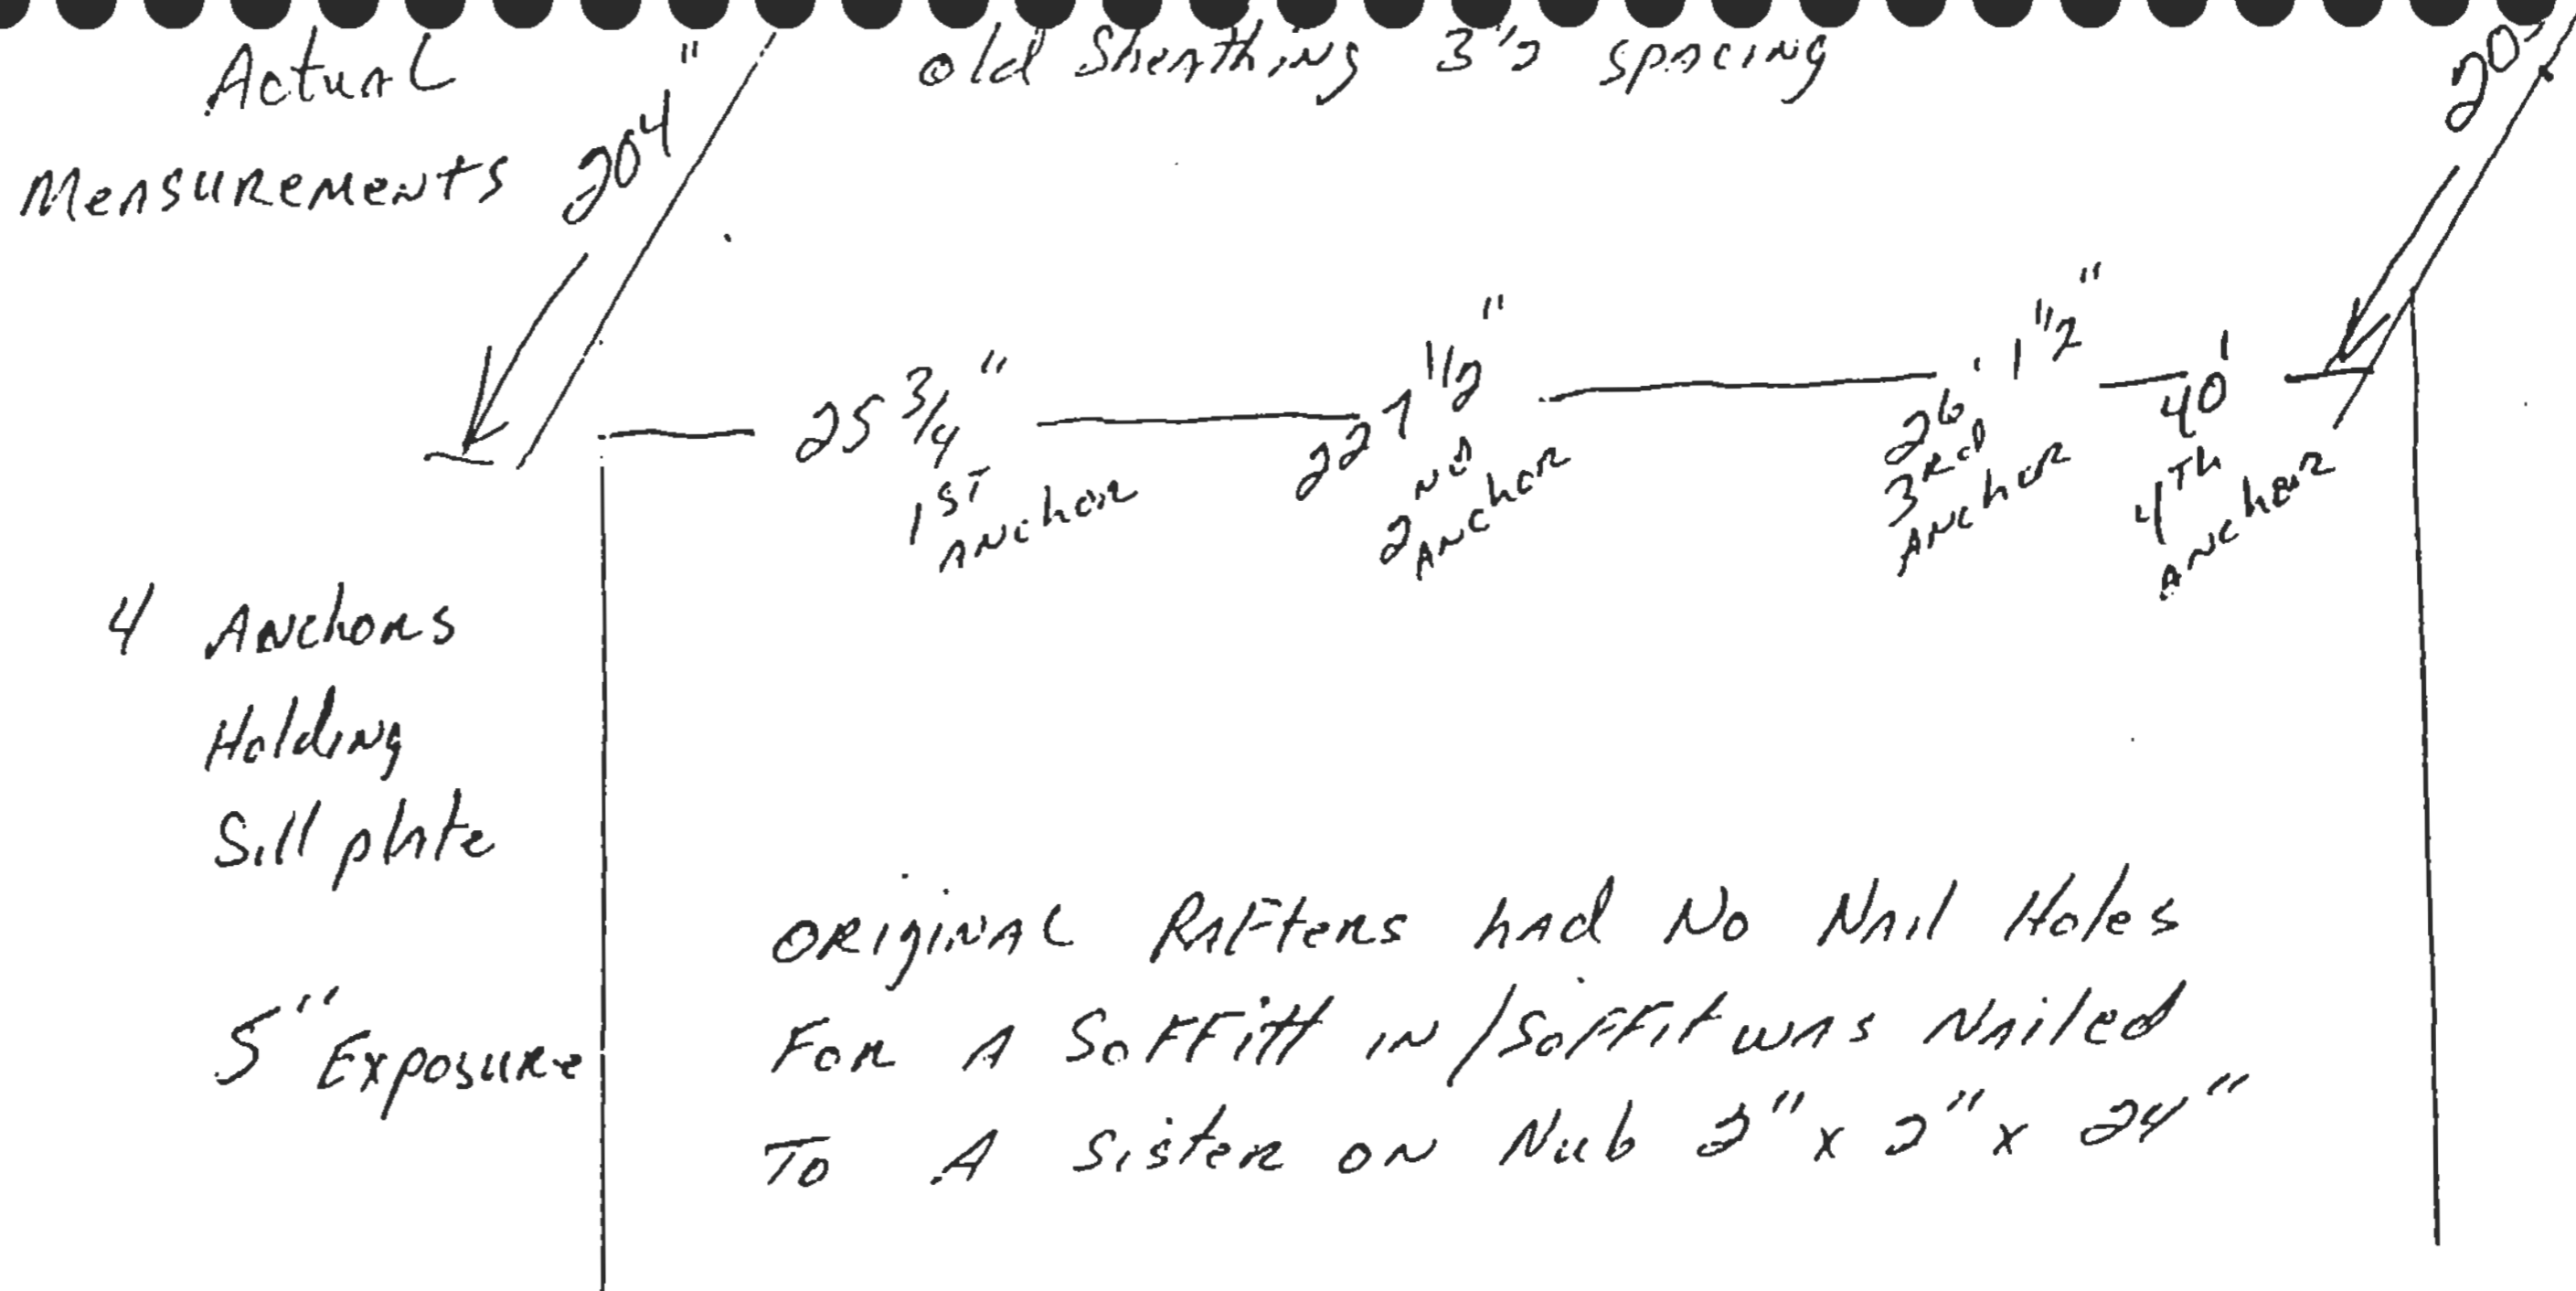 Actual
Measurements
old Sheathing 3 1/2 spacing
20 4"
20
25 3/4"
1ST
Anchor
22 7 1/2"
2ND
Anchor
26' 1 1/2"
3Rd
Anchor
40'
4Th
Ancher
4 Anchors
Holding
Sill plate
5" Exposure
Original Rafters had No Nail Holes
For A Soffitt in/Soffit was Nailed
To A Sister on Nub 2" x 2" x 24"